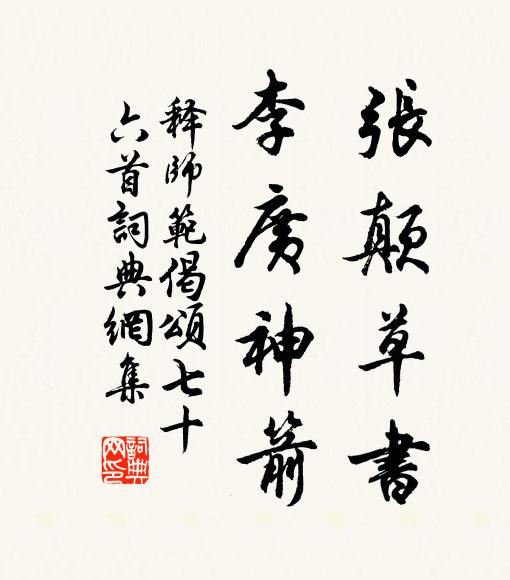 張顛草書
李廣神箭
释師範偈頌七十
六首詞典網集
詞典
网印